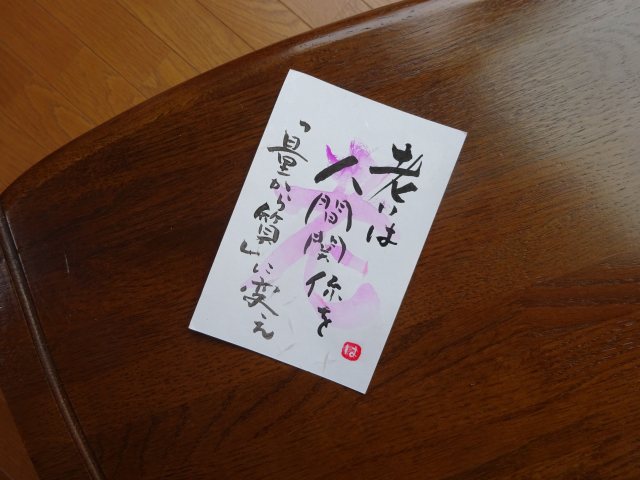 老いは
人間関係を
「量から質」に変え